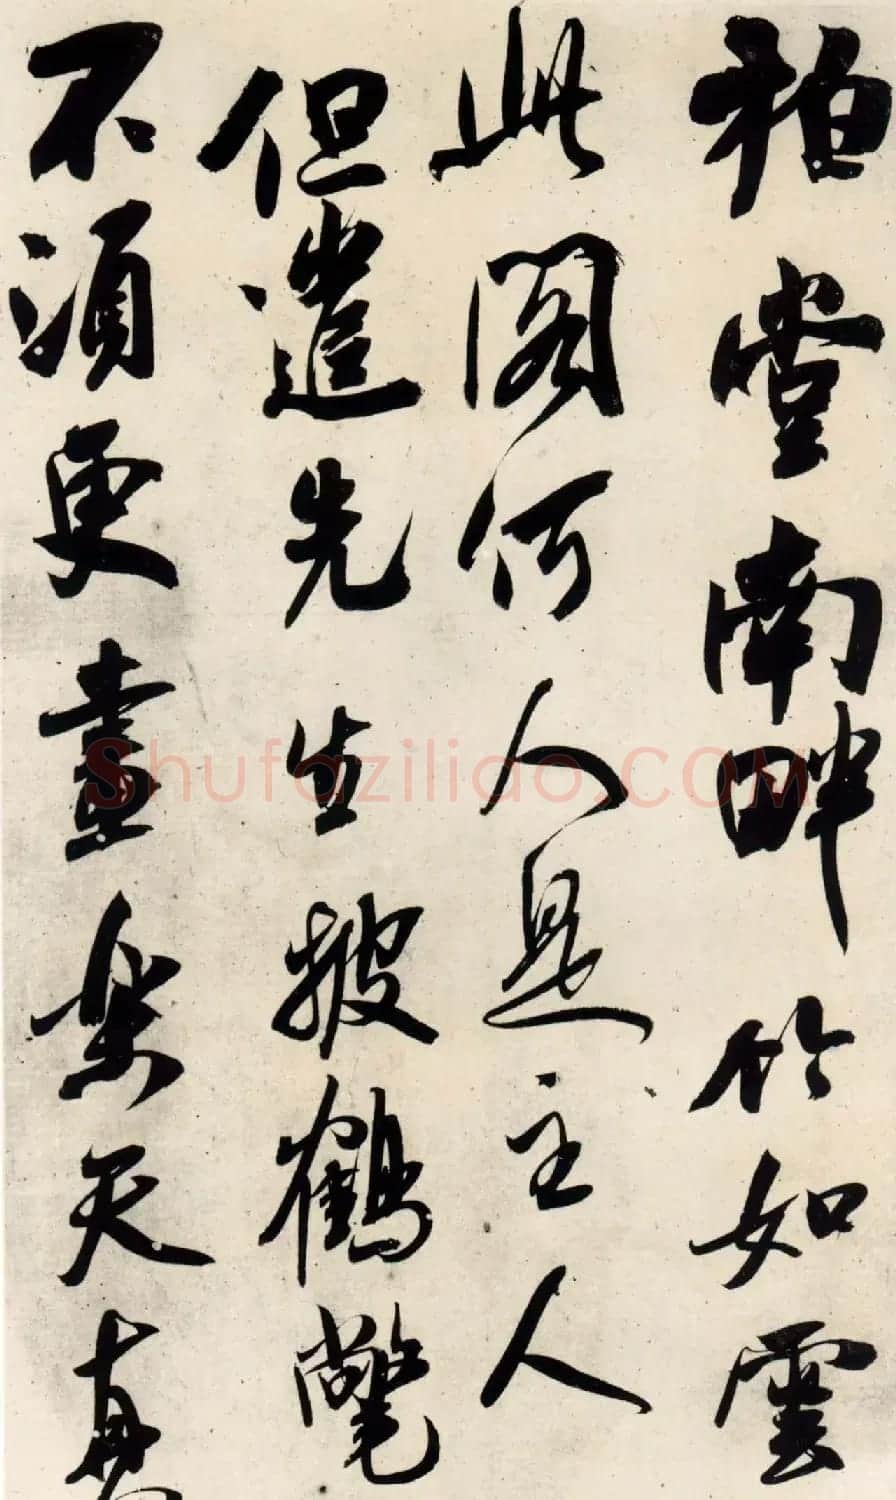 柏堂南畔竹如雲
此閣何人是主人
但遣先生披鶴氅
不須更畫樂天真
Shufaziliao.COM